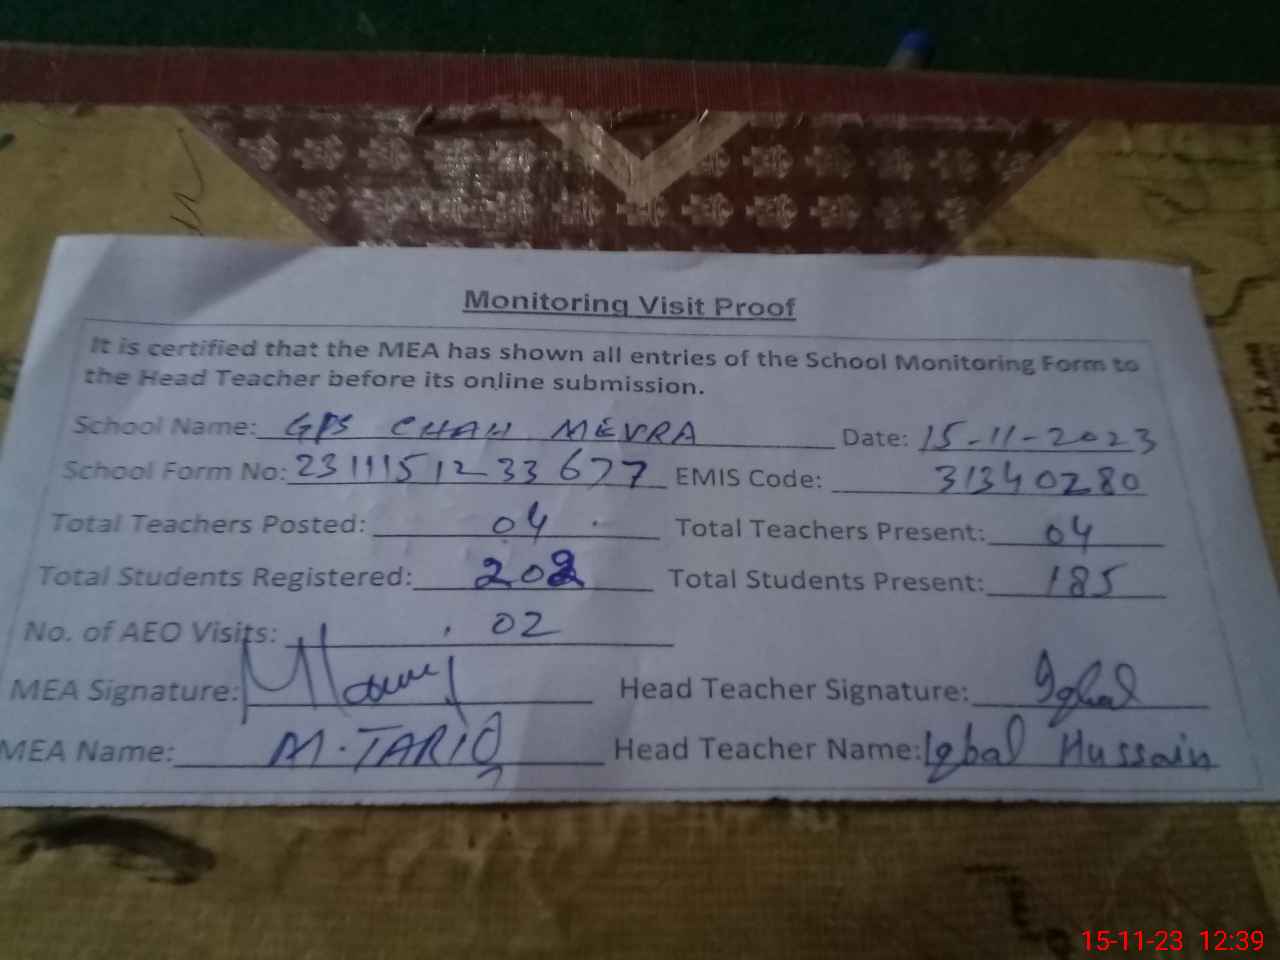 Monitoring Visit Proof
It is certified that the MEA has shown all entries of the School Monitoring Form to
the Head Teacher before its online submission.
School Name: GPS CHAH MEVRA Date: 15-11-2023
School Form No: 2311151233677 EMIS Code: 31340280
Total Teachers Posted: 04 Total Teachers Present: 04
Total Students Registered: 202 Total Students Present: 185
No. of AEO Visits: 02
MEA Signature: Head Teacher Signature: Iqbal
MEA Name: M. TARIQ Head Teacher Name: Iqbal Hussain
15-11-23 12:39